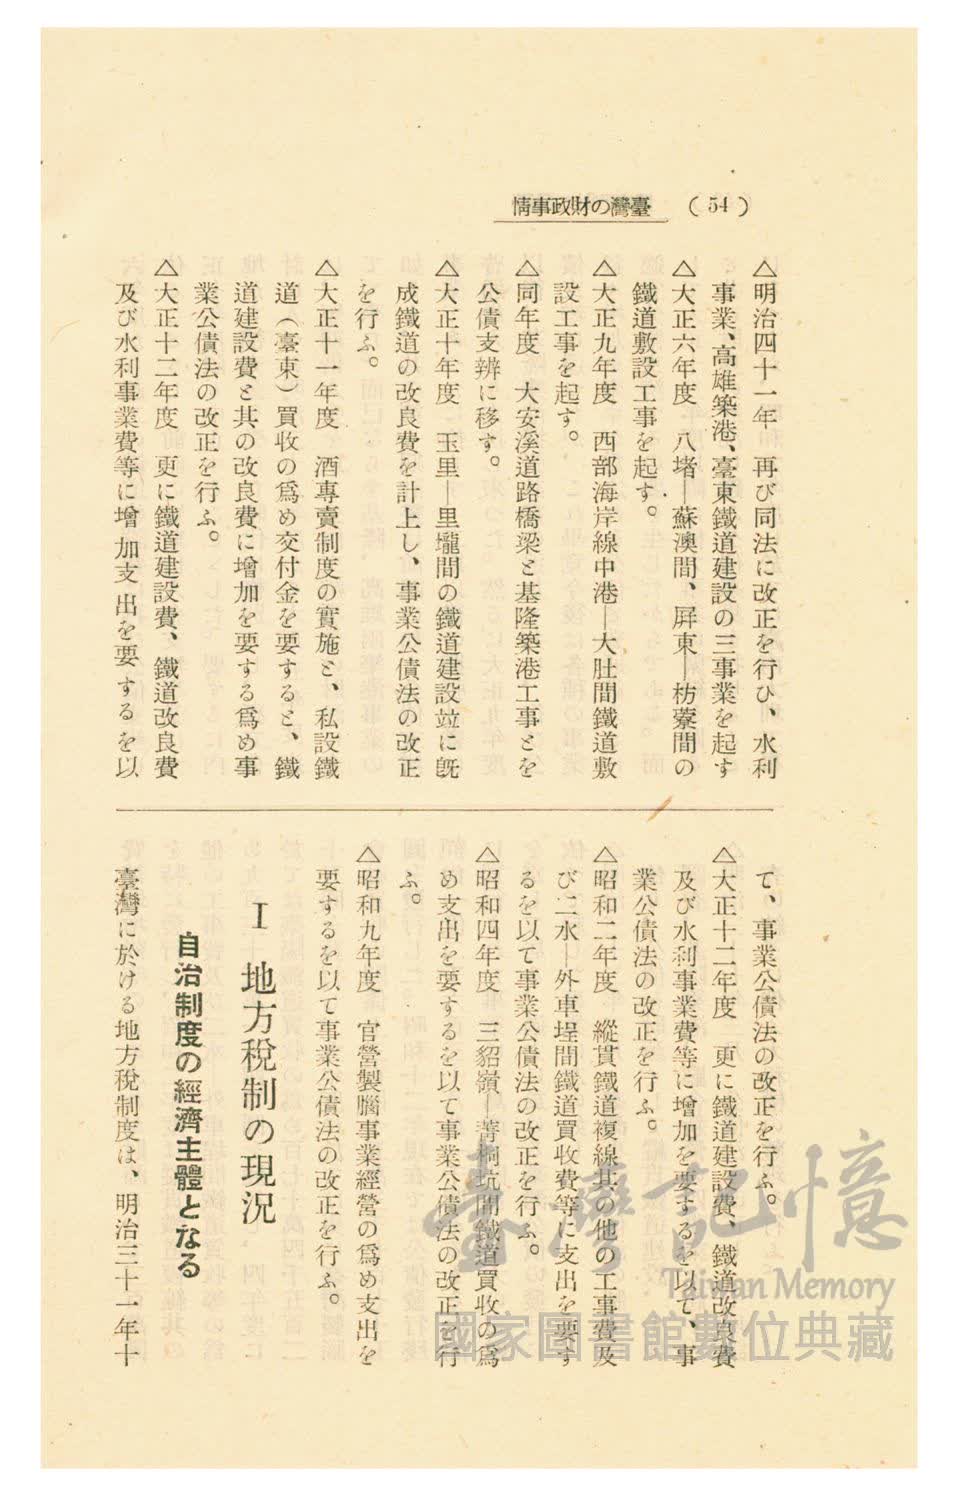 (54)
臺灣の財政事情
△明治四十一年　再び同法に改正を行ひ、水利
事業、高雄築港、臺東鐵道建設の三事業を起す
△大正六年度　八堵—蘇澳間、屏東—枋藔間の
鐵道敷設工事を起す。
△大正九年度　西部海岸線中港—大肚間鐵道敷
設工事を起す。
△同年度　大安溪道路橋梁と基隆築港工事とを
公債支辨に移す。
△大正十年度　玉里—里壠間の鐵道建設竝に旣
成鐵道の改良費を計上し、事業公債法の改正
を行ふ。
△大正十一年度　酒專賣制度の實施と、私設鐵
道（臺東）買收の爲め交付金を要すると、鐵
道建設費と其の改良費に增加を要する爲め事
業公債法の改正を行ふ。
△大正十二年度　更に鐵道建設費、鐵道改良費
及び水利事業費等に增加支出を要するを以
て、事業公債法の改正を行ふ。
△大正十二年度　更に鐵道建設費、鐵道改良費
及び水利事業費等に增加を要するを以て、事
業公債法の改正を行ふ。
△昭和二年度　縱貫鐵道複線其の他の工事費及
び二水—外車埕間鐵道買收費等に支出を要す
るを以て事業公債法の改正を行ふ。
△昭和四年度　三貂嶺—菁桐坑間鐵道買收の爲
め支出を要するを以て事業公債法の改正を行
ふ。
△昭和九年度　官營製腦事業經營の爲め支出を
要するを以て事業公債法の改正を行ふ。
I　地方稅制の現況
自治制度の經濟主體となる
臺灣に於ける地方稅制度は、明治三十一年十
臺灣記憶
Taiwan Memory
國家圖書館數位典藏